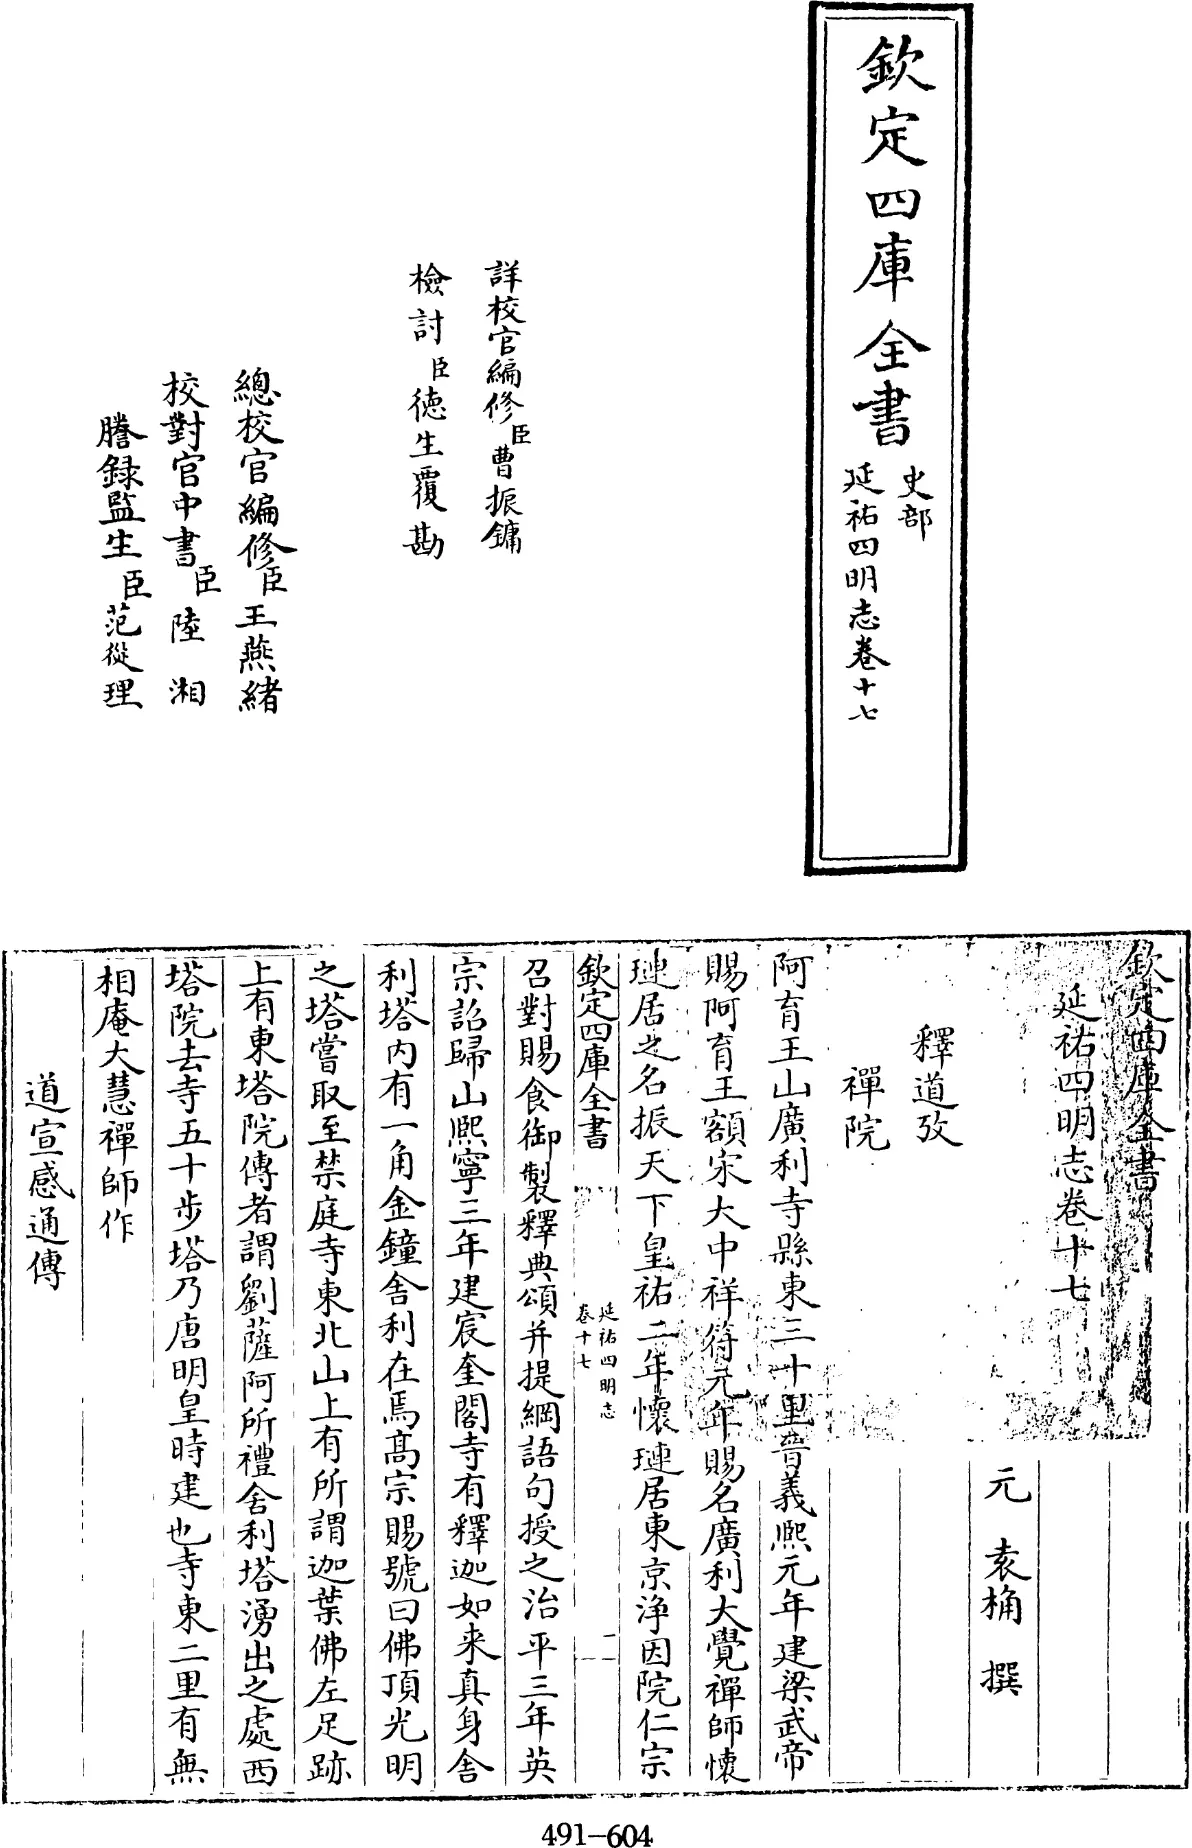 欽定四庫全書
史部
延祐四明志卷十七
詳校官編修臣曹振鏞
檢討臣德生覆勘
總校官編修臣王燕緒
校對官中書臣陸湘
謄録監生臣范從理
欽定四庫全書
延祐四明志卷十七
元 袁桷 撰
釋道攷
禪院
阿育王山廣利寺縣東三十里晉義熙元年建梁武帝
賜阿育王額宋大中祥符元年賜名廣利大覺禪師懷
璉居之名振天下皇祐二年懷璉居東京淨因院仁宗
欽定四庫全書
延祐四明志
卷十七
一
召對賜食御製釋典頌并提綱語句授之治平三年英
宗詔歸山熙寧三年建宸奎閣寺有釋迦如来真身舎
利塔内有一角金鐘舎利在焉髙宗賜號曰佛頂光明
之塔嘗取至禁庭寺東北山上有所謂迦葉佛左足跡
上有東塔院傳者謂劉薩阿所禮舎利塔湧出之處西
塔院去寺五十步塔乃唐明皇時建也寺東二里有無
相庵大慧禪師作
道宣感通傳
491-604